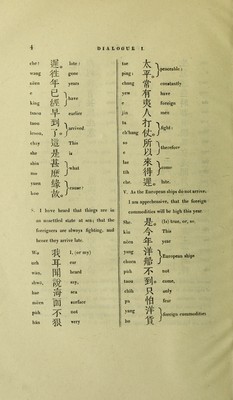 4 DIALOGUE I
che: 遲。 late:
wang 往 gone
nëen 年 years
e 已
king 經 } have
tsaou 早 earlier
taou 到
leaou, 了。 } arrived
chay 這 This
she 是 is
shin 甚
mo 麼 } what
yuen 緣
koo 故。 } cause?
8. I have heard that things are in
an unsettled state at sea; that the
foreigners are always fighting, and
hence they arrive late.
Wo 我 I, (or my)
urh 耳 ear
wăn, 聞 heard
shwŏ, 說 say,
hae 海 sea
mëen 面 surface
pŭh 不 not
hăn 狠 very
tae 太
ping: 平。 } peaceable;
chang 當 constantly
yew 有 have
e 夷 foreign
jin 人 men
ta 打
ch'hang 仗。 } fight:
so 所
e 以 } therefore
lae 來 come
tĭh 得
che: 遲。 late.
9. As the European ships do not arrive,
I am apprehensive, that the foreign
commodities will be high this year
She. 是。 (It) true, or, so.
kin 今 This
nëen 年 year
yang 洋
chuen 船 } European ships
pŭh 不 not
taou 到。 come,
chih 只 only
pa 怕 fear
yang 洋
ho 貨 } foreign commodities